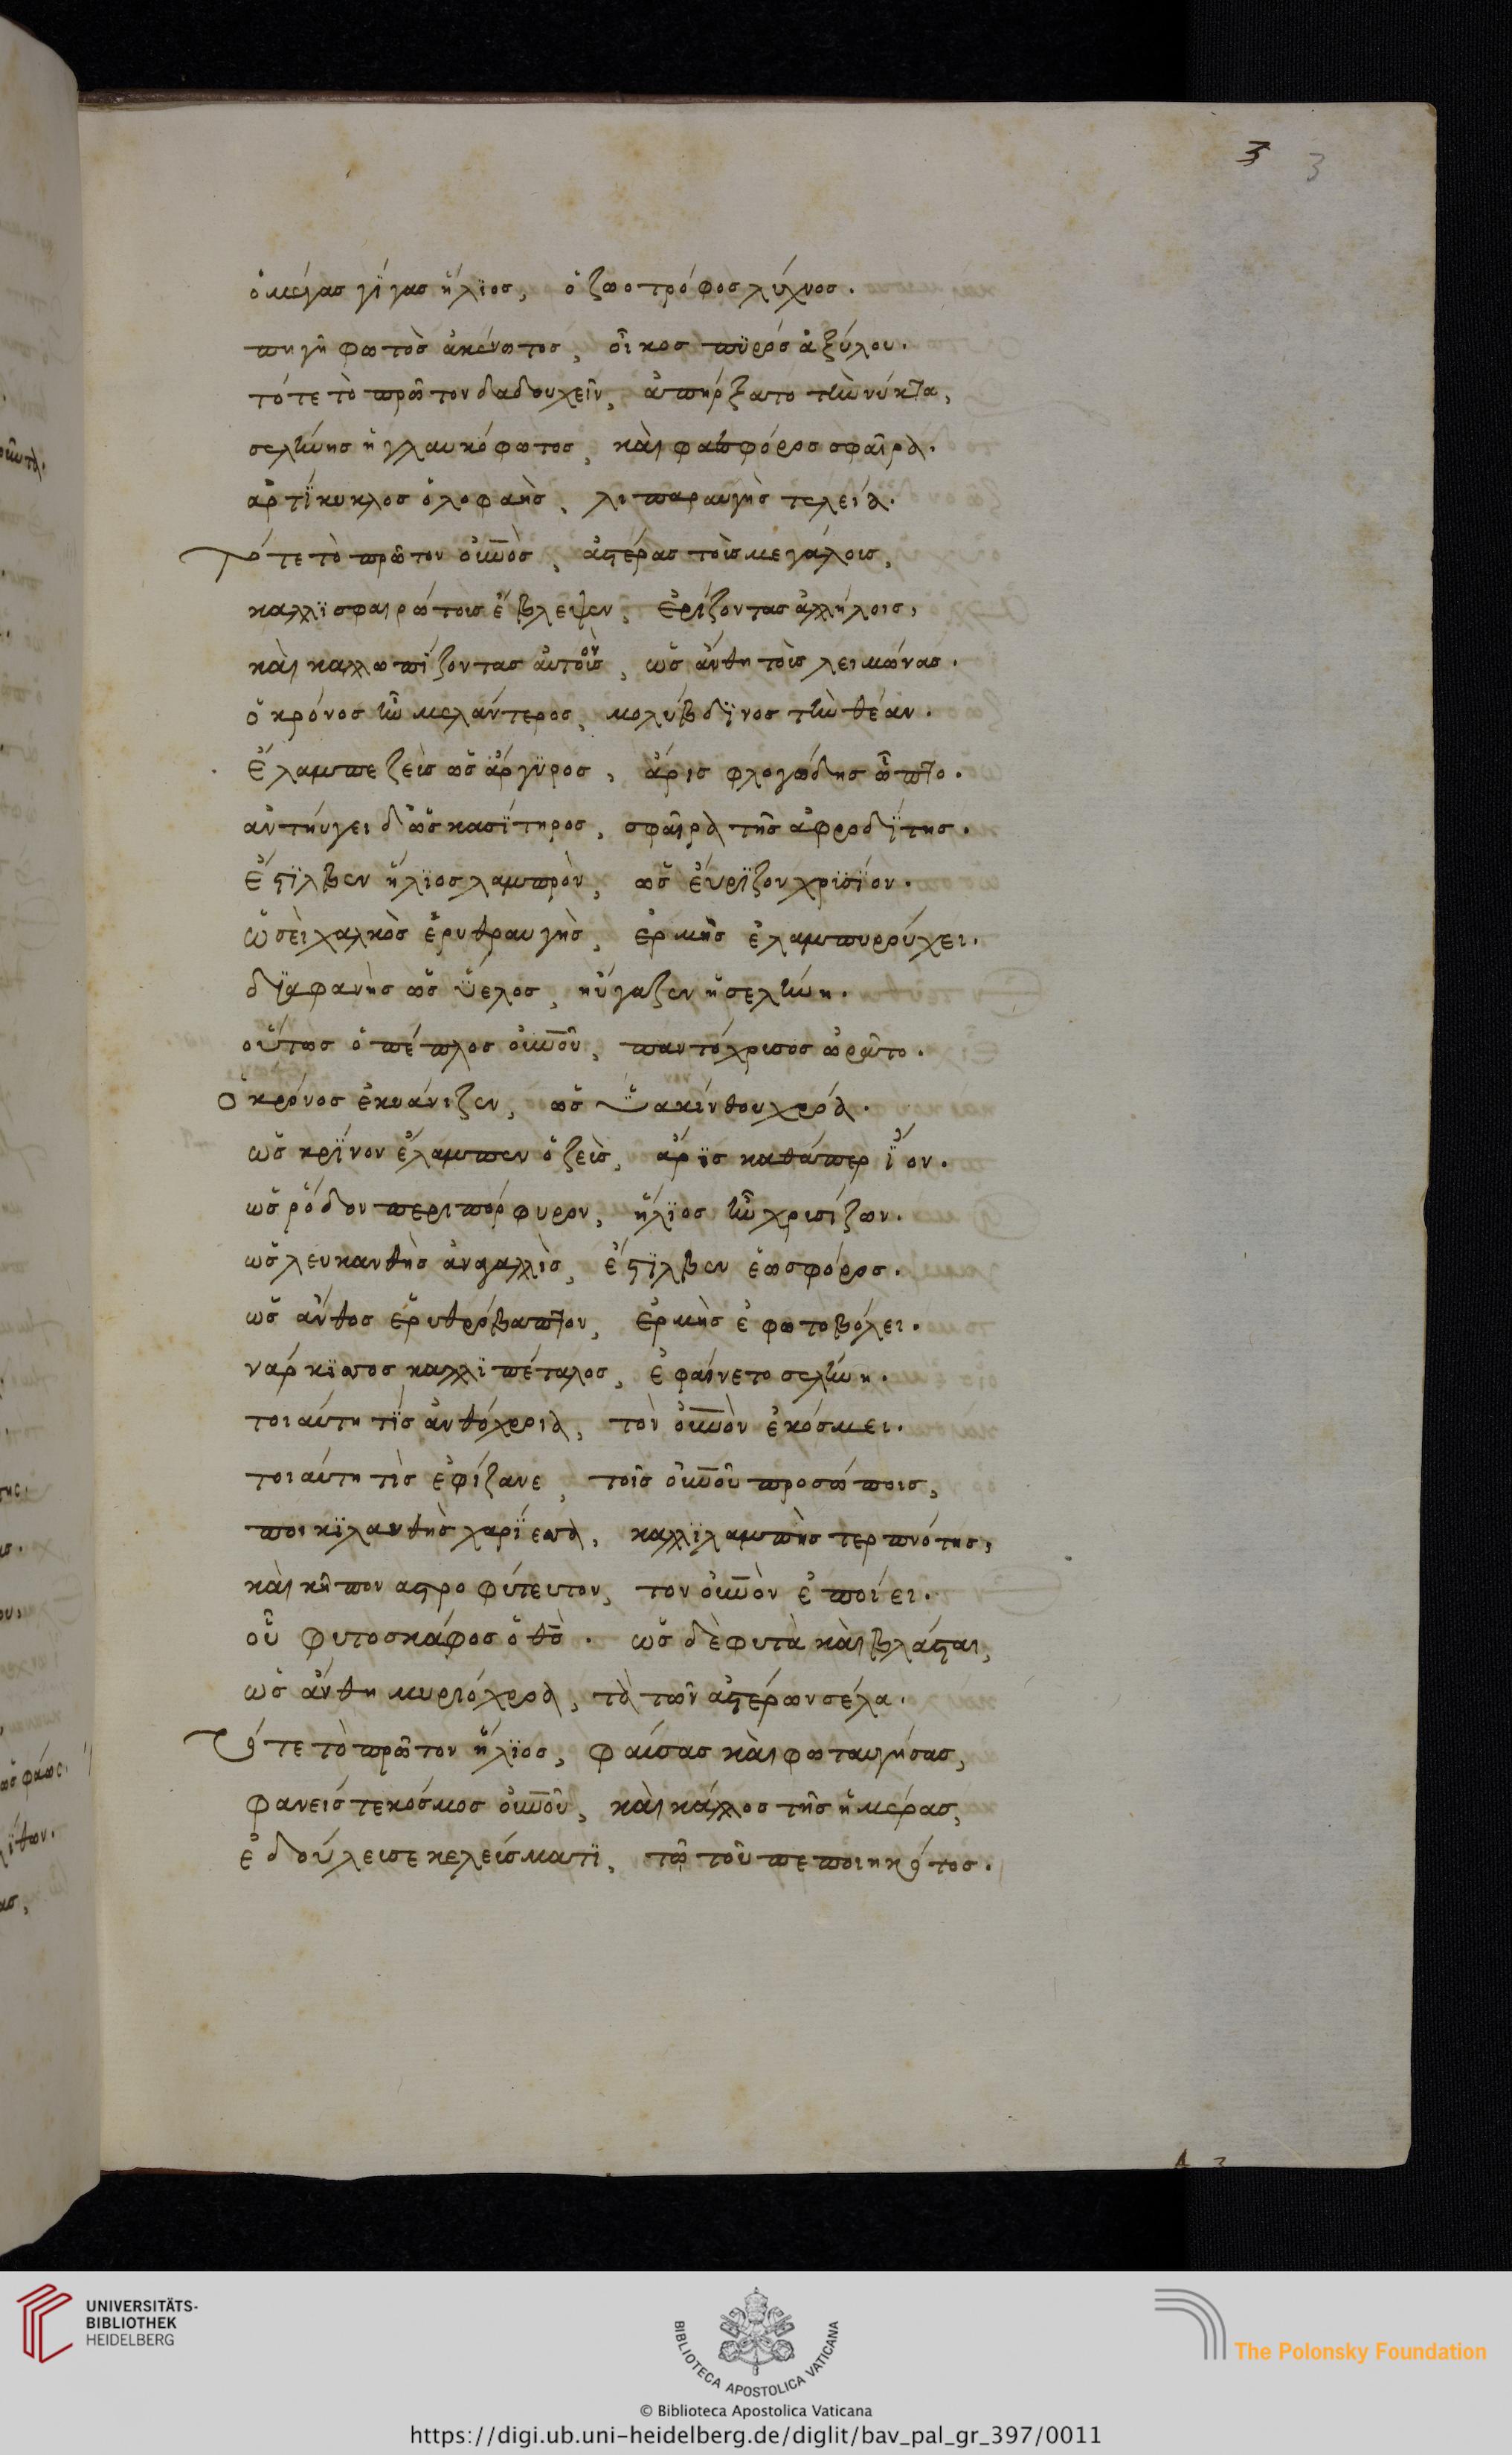 3 3
ὁ μέγας γίγας ἥλϊος, ὁ ζωοτρόφος λύχνος.
πηγὴ φωτὸς ἀκένωτος, οἶκος πϋρός ἀξύλου.
τότε τὸ πρῶτον δαδουχεῖν, ἀπήρξατο τὴν νύκτα,
σελήνης ἡ γλαυκόφωτος, καὶ φαεσφόρος σφαῖρα.
ἀρτίκυκλος ὁλοφαὴς, λιπαραυγὴς τελεία.
Τότε τὸ πρῶτον οὐνὸς, ἀστέρας τοῖς μεγάλοις,
καλλϊσφαιρώτοις ἔβλεψεν, ἐρίζοντας ἀλλήλοις,
καὶ καλλωπίζοντας αὐτοῖς, ὡς ἄνθη τοῖς λειμώνας.
ὁ κρόνος ἦν μελάντερος, μολύβδϊνος τὴν θέαν.
ἔλαμπε ζεὶς ὡς ἄργϋρος, ἄρις φλογώδης ὦπτο.
ἀντήυγει δ ὡς κασίτηρος, σφαῖρα τῆς ἀφροδίτης.
ἔστϊλβεν ἥλϊος λαμπρὸν, ὡς ἐύρϊζον χρϊσϊον.
ὡσεὶ χαλκὸς ἐρυθραυγὴς, ἑρμῆς ἐλαμπυρρύχει.
δϊαφανὴς ὡς ὕελος, ηὔγαζεν ἡ σελήνη.
οὕτως ὁ πέπλος οὐνοῦ, παντόχρισος ὡρᾶτο.
Ὁ κρόνος ἐκυάνιζεν, ὡς ὑακίνθου χρόα.
ὡς κρίνον ἔλαμπεν ὁ ζεὶς, ἄρϊς καθάπερ ἴον.
ὡς ῥόδον περιπόρφυρον, ἥλϊος ἦν χρισίζων.
ὡς λευκανθὴς ἀναγαλλὶς, ἔστϊλβεν ἑωσφόρος.
ὡς ἄνθος ἐρυθρόβαπτον, ἑρμὴς ἐφωτοβόλει.
νάρκϊσσος καλλϊπέταλος, ἐφαίνετο σελήνη.
τοιαύτη τϊς ἀνθόχροια, τὸν οὐνὸν ἐκόσμει.
τοιαύτη τὶς ἐφίζανε, τοῖς οὐνοῦ προσώποις,
ποικϊλανθὴς χαρίεσσα, καλλϊλαμπὴς τερπνότης,
καὶ κῆπον αστροφύτευτον, τον οὐνὸν ἐποίει.
οὗ φυτοσκάφος ὁ θς. ὡς δὲ φυτὰ καὶ βλάσται,
ὡς ἄνθη μυριόχροα, τὰ τῶν ἀστέρων σέλα.
Τότε τὸ πρῶτον ἥλϊος, φαίσας καὶ φωταυγήσας,
φανείς τε κόσμος οὐνοῦ, καὶ κάλλος τῆς ἡμέρας,
ἐδούλεισε κελείσματϊ, τῷ τοῦ πεποιηκότος.
UNIVERSITÄTS-
BIBLIOTHEK
HEIDELBERG
BIBLIOTECA APOSTOLICA VATICANA
The Polonsky Foundation
© Biblioteca Apostolica Vaticana
https://digi.ub.uni-heidelberg.de/diglit/bav_pal_gr_397/0011